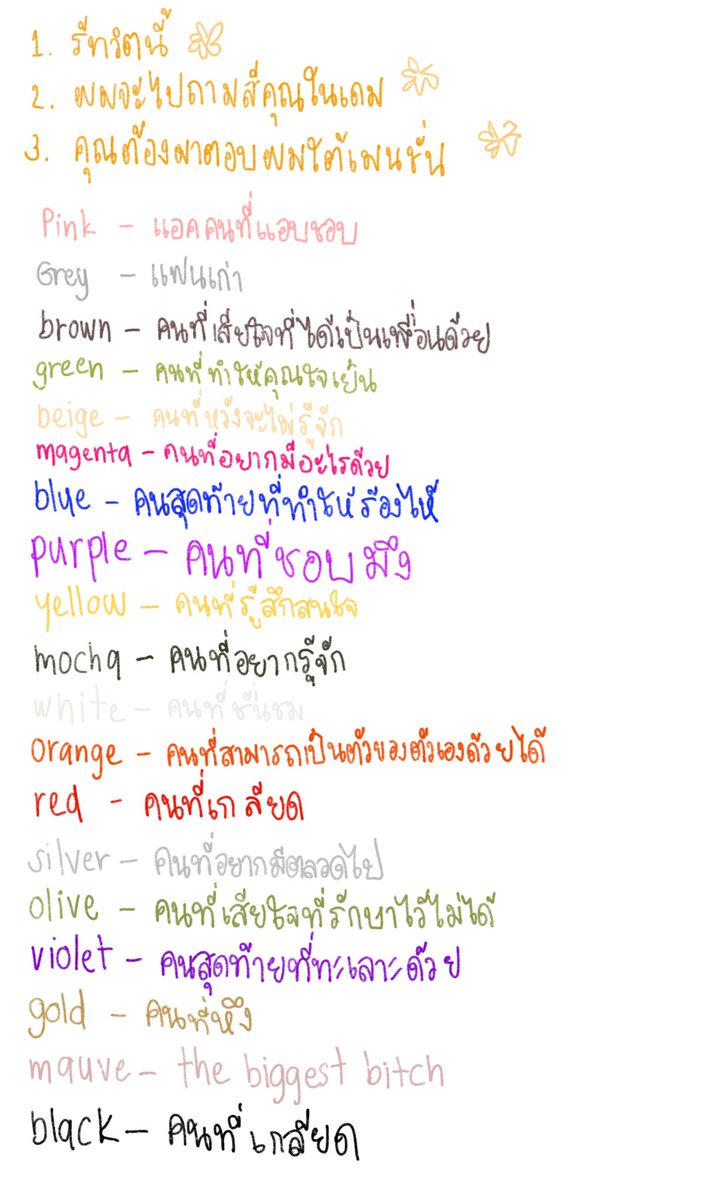 1. รีทวิตนี้
2. ผมจะไปถามสีคุณในเดม
3. คุณต้องมาตอบผมใต้เมนชั่น
Pink - แอคคนที่แอบชอบ
Grey - แฟนเก่า
brown - คนที่เสียใจที่ได้เป็นเพื่อนด้วย
green - คนที่ทำให้คุณใจเย็น
beige - คนที่หวังจะไม่รู้จัก
magenta - คนที่อยากมีอะไรด้วย
blue - คนสุดท้ายที่ทำให้ร้องไห้
purple - คนที่ชอบมึง
yellow - คนที่รู้สึกสนใจ
mocha - คนที่อยากรู้จัก
white - คนที่ชื่นชม
orange - คนที่สามารถเป็นตัวของตัวเองด้วยได้
red - คนที่เกลียด
silver - คนที่อยากมีตลอดไป
olive - คนที่เสียใจที่รักษาไว้ไม่ได้
violet - คนสุดท้ายที่ทะเลาะด้วย
gold - คนที่หึง
mauve - the biggest bitch
black - คนที่เกลียด